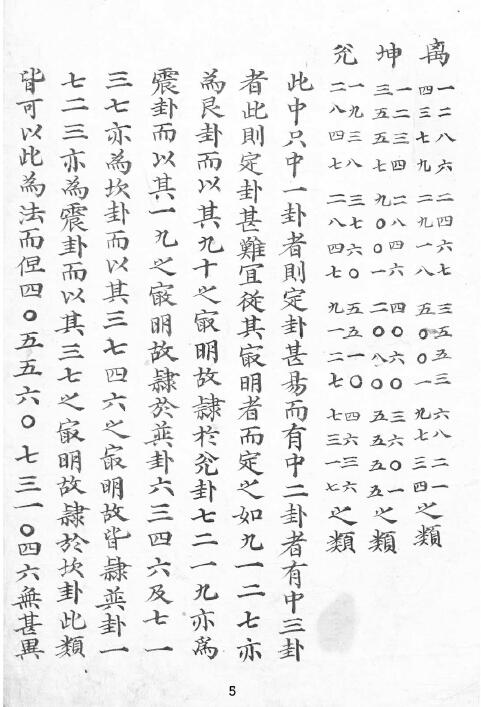 离 一二八六 二四六七 三五五三 六八二一
四三七九 二九一八 五〇〇一 九七三四 之類
坤 一二三四 二八四六 四〇六〇 三六〇一
三五五七 九〇〇一 二〇八〇 五五五五 之類
兊 一九三八 三七六〇 五五一〇 四六三六
二八四七 二八四七 九一二七 七三一七 之類
此中只中一卦者則定卦甚易而有中二卦者有中三卦
者此則定卦甚難宜從其㝡明者而定之如九一二七亦
為艮卦而以其九十之㝡明故隷於兊卦七二一九亦為
震卦而以其一九之㝡明故隷於㢲卦六三四六及七一
三七亦為坎卦而以其三七四六之㝡明故皆隷㢲卦一
七二三亦為震卦而以其三七之㝡明故隷於坎卦此類
皆可以此為法而但四〇五五六〇七三一〇四六無甚異
5